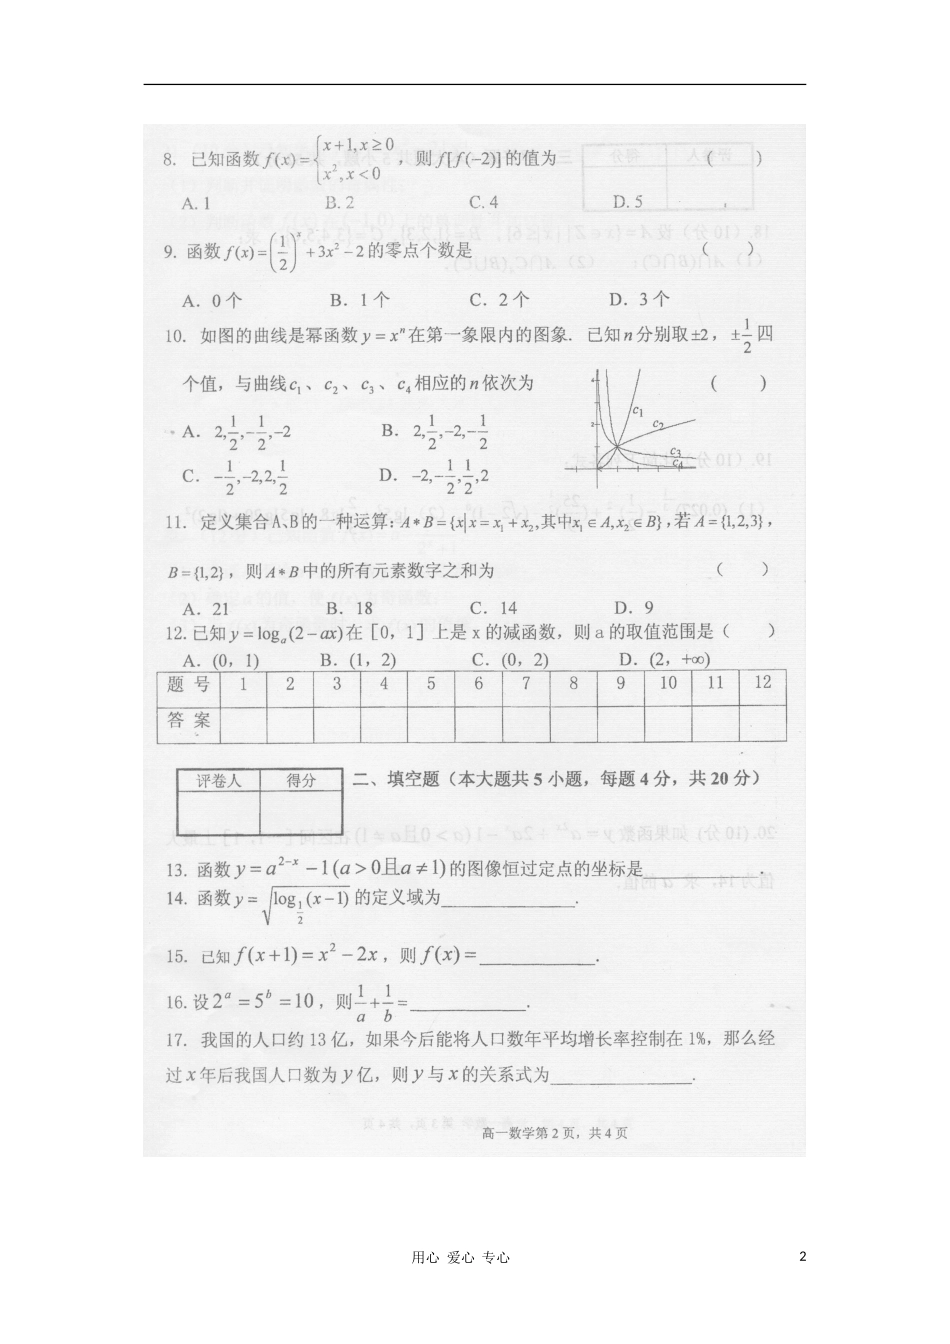 8. 已知函数 f(x)={x+1,x≥0 x²,x<0 , 则 f[f(-2)]的值为 ( )
A. 1 B. 2 C. 4 D. 5
9. 函数 f(x)=(1/2)^x+3x²-2的零点个数是 ( )
A. 0个 B. 1个 C. 2个 D. 3个
10. 如图的曲线是幂函数 y=xⁿ在第一象限内的图象. 已知n分别取±2, ±1/2四
个值, 与曲线c₁、c₂、c₃、c₄相应的n依次为 ( )
A. 2,1/2,-1/2,-2 B. 2,1/2,-2,-1/2
C. -1/2,-2,2,1/2 D. -2,-1/2,1/2,2
c₁
c₂
c₃
c₄
11. 定义集合A、B的一种运算: A*B={x|x=x₁+x₂,其中x₁∈A,x₂∈B},若A={1,2,3},
B={1,2}, 则A*B中的所有元素数字之和为 ( )
A. 21 B. 18 C. 14 D. 9
12.已知 y=logₐ(2-ax)在[0, 1]上是x的减函数, 则a的取值范围是( )
A. (0, 1) B. (1, 2) C. (0, 2) D. (2, +∞)
题 号 1 2 3 4 5 6 7 8 9 10 11 12
答 案
评卷人 得分 二、填空题(本大题共5小题, 每题4分, 共20分)
13. 函数 y=a^(2-x)-1(a>0且a≠1)的图像恒过定点的坐标是________.
14. 函数 y=√(log_(1/2)(x-1)) 的定义域为________.
15. 已知 f(x+1)=x²-2x, 则 f(x)=________.
16. 设2ᵃ=5ᵇ=10, 则1/a+1/b=________.
17. 我国的人口约13亿, 如果今后能将人口数年平均增长率控制在1%, 那么经
过x年后我国人口数为y亿, 则y与x的关系式为________.
高一数学第2页, 共4页
用心 爱心 专心 2